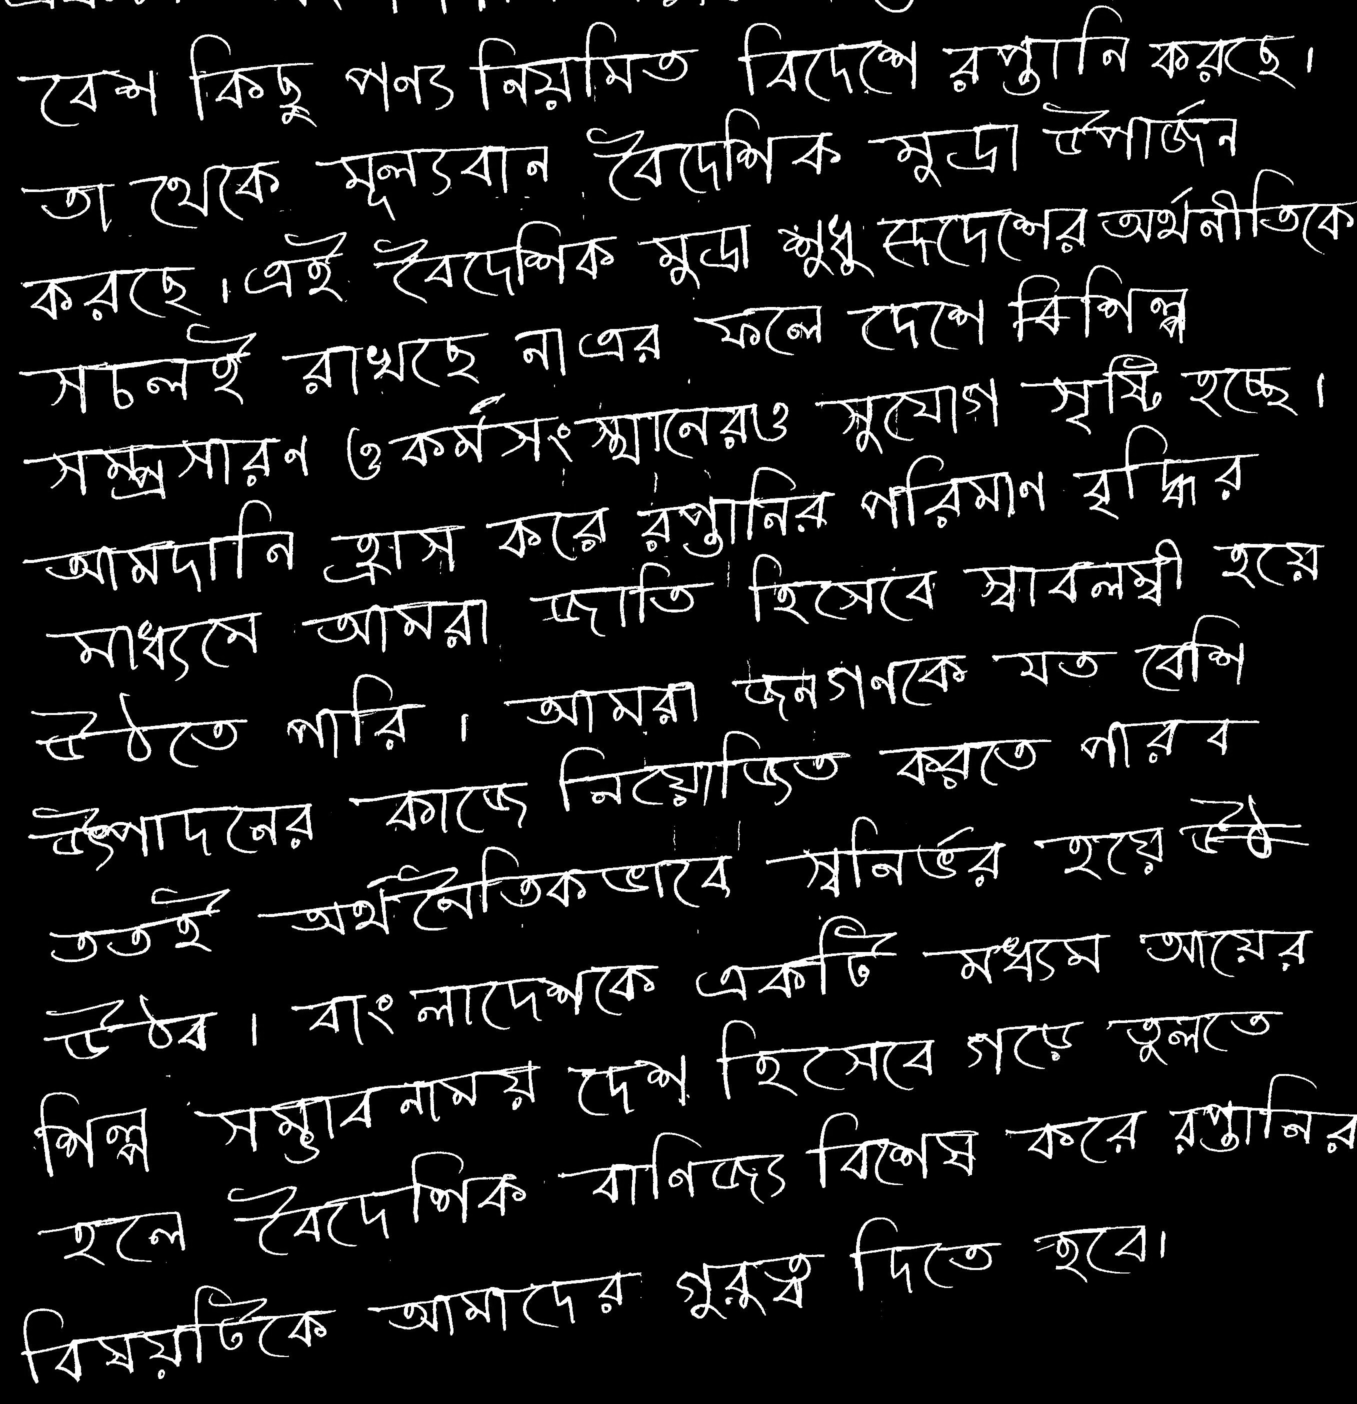 বেশ কিছু পণ্য নিয়মিত বিদেশে রপ্তানি করছে।
তা থেকে মূল্যবান বৈদেশিক মুদ্রা উপার্জন
করছে। এই বৈদেশিক মুদ্রা শুধু দেশের অর্থনীতিকে
সচলই রাখছে না এর ফলে দেশে শিল্প
সম্প্রসারণ ও কর্মসংস্থানেরও সুযোগ সৃষ্টি হচ্ছে।
আমদানি হ্রাস করে রপ্তানির পরিমাণ বৃদ্ধির
মাধ্যমে আমরা জাতি হিসেবে স্বাবলম্বী হয়ে
উঠতে পারি। আমরা জনগণকে যত বেশি
উৎপাদনের কাজে নিয়োজিত করতে পারব
ততই অর্থনৈতিকভাবে স্বনির্ভর হয়ে
উঠব। বাংলাদেশকে একটি মধ্যম আয়ের
শিল্প সম্ভাবনাময় দেশ হিসেবে গড়ে তুলতে
হলে বৈদেশিক বাণিজ্য বিশেষ করে রপ্তানির
বিষয়টিকে আমাদের গুরুত্ব দিতে হবে।